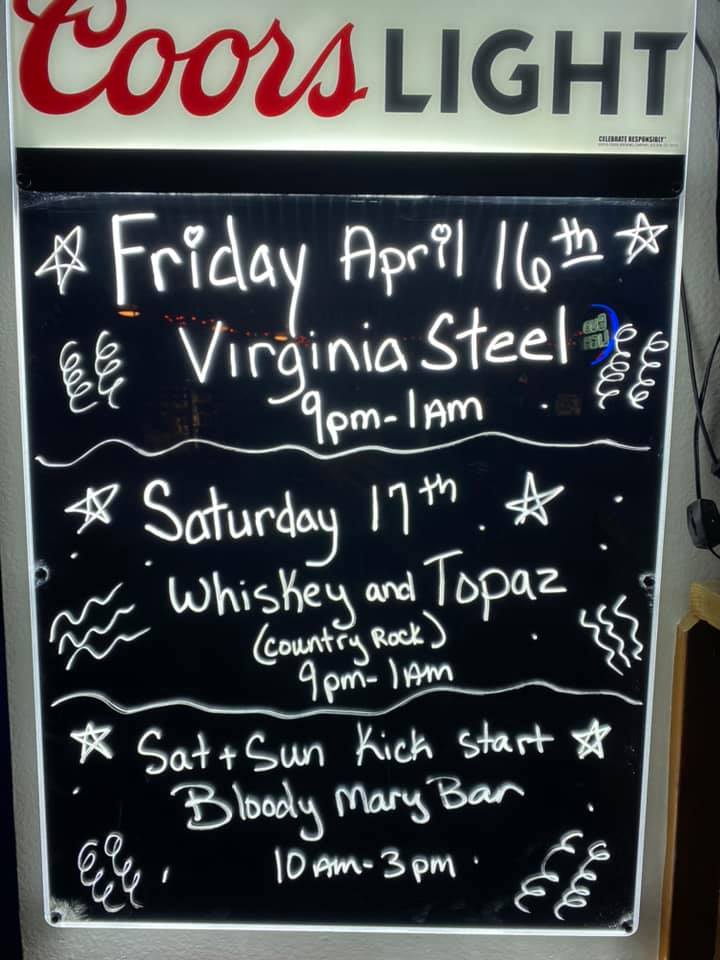 Coors LIGHT
CELEBRATE RESPONSIBLY
Friday April 16th
Virginia Steel
9pm-1AM
Saturday 17th
Whiskey and Topaz
(Country Rock)
9pm-1AM
Sat + Sun Kick start
Bloody Mary Bar
10 AM-3pm